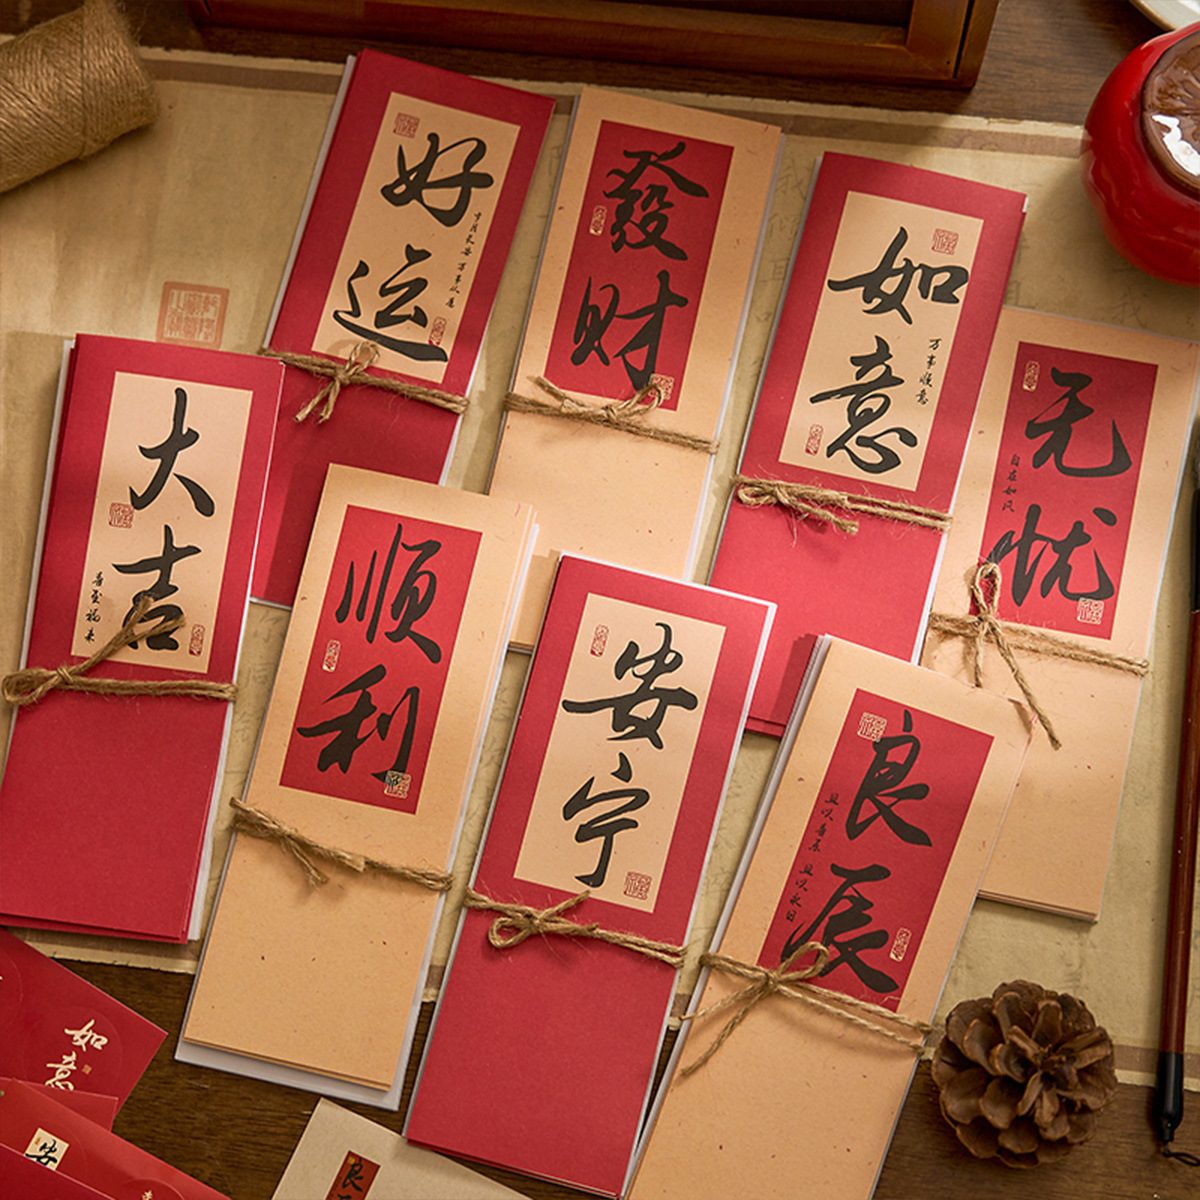 好运
岁月长安 万事从意
發财
如意
万事顺意
无忧
自在如风
大吉
喜至福来
顺利
安宁
良辰
且以喜乐 且以永日
如意
安
良